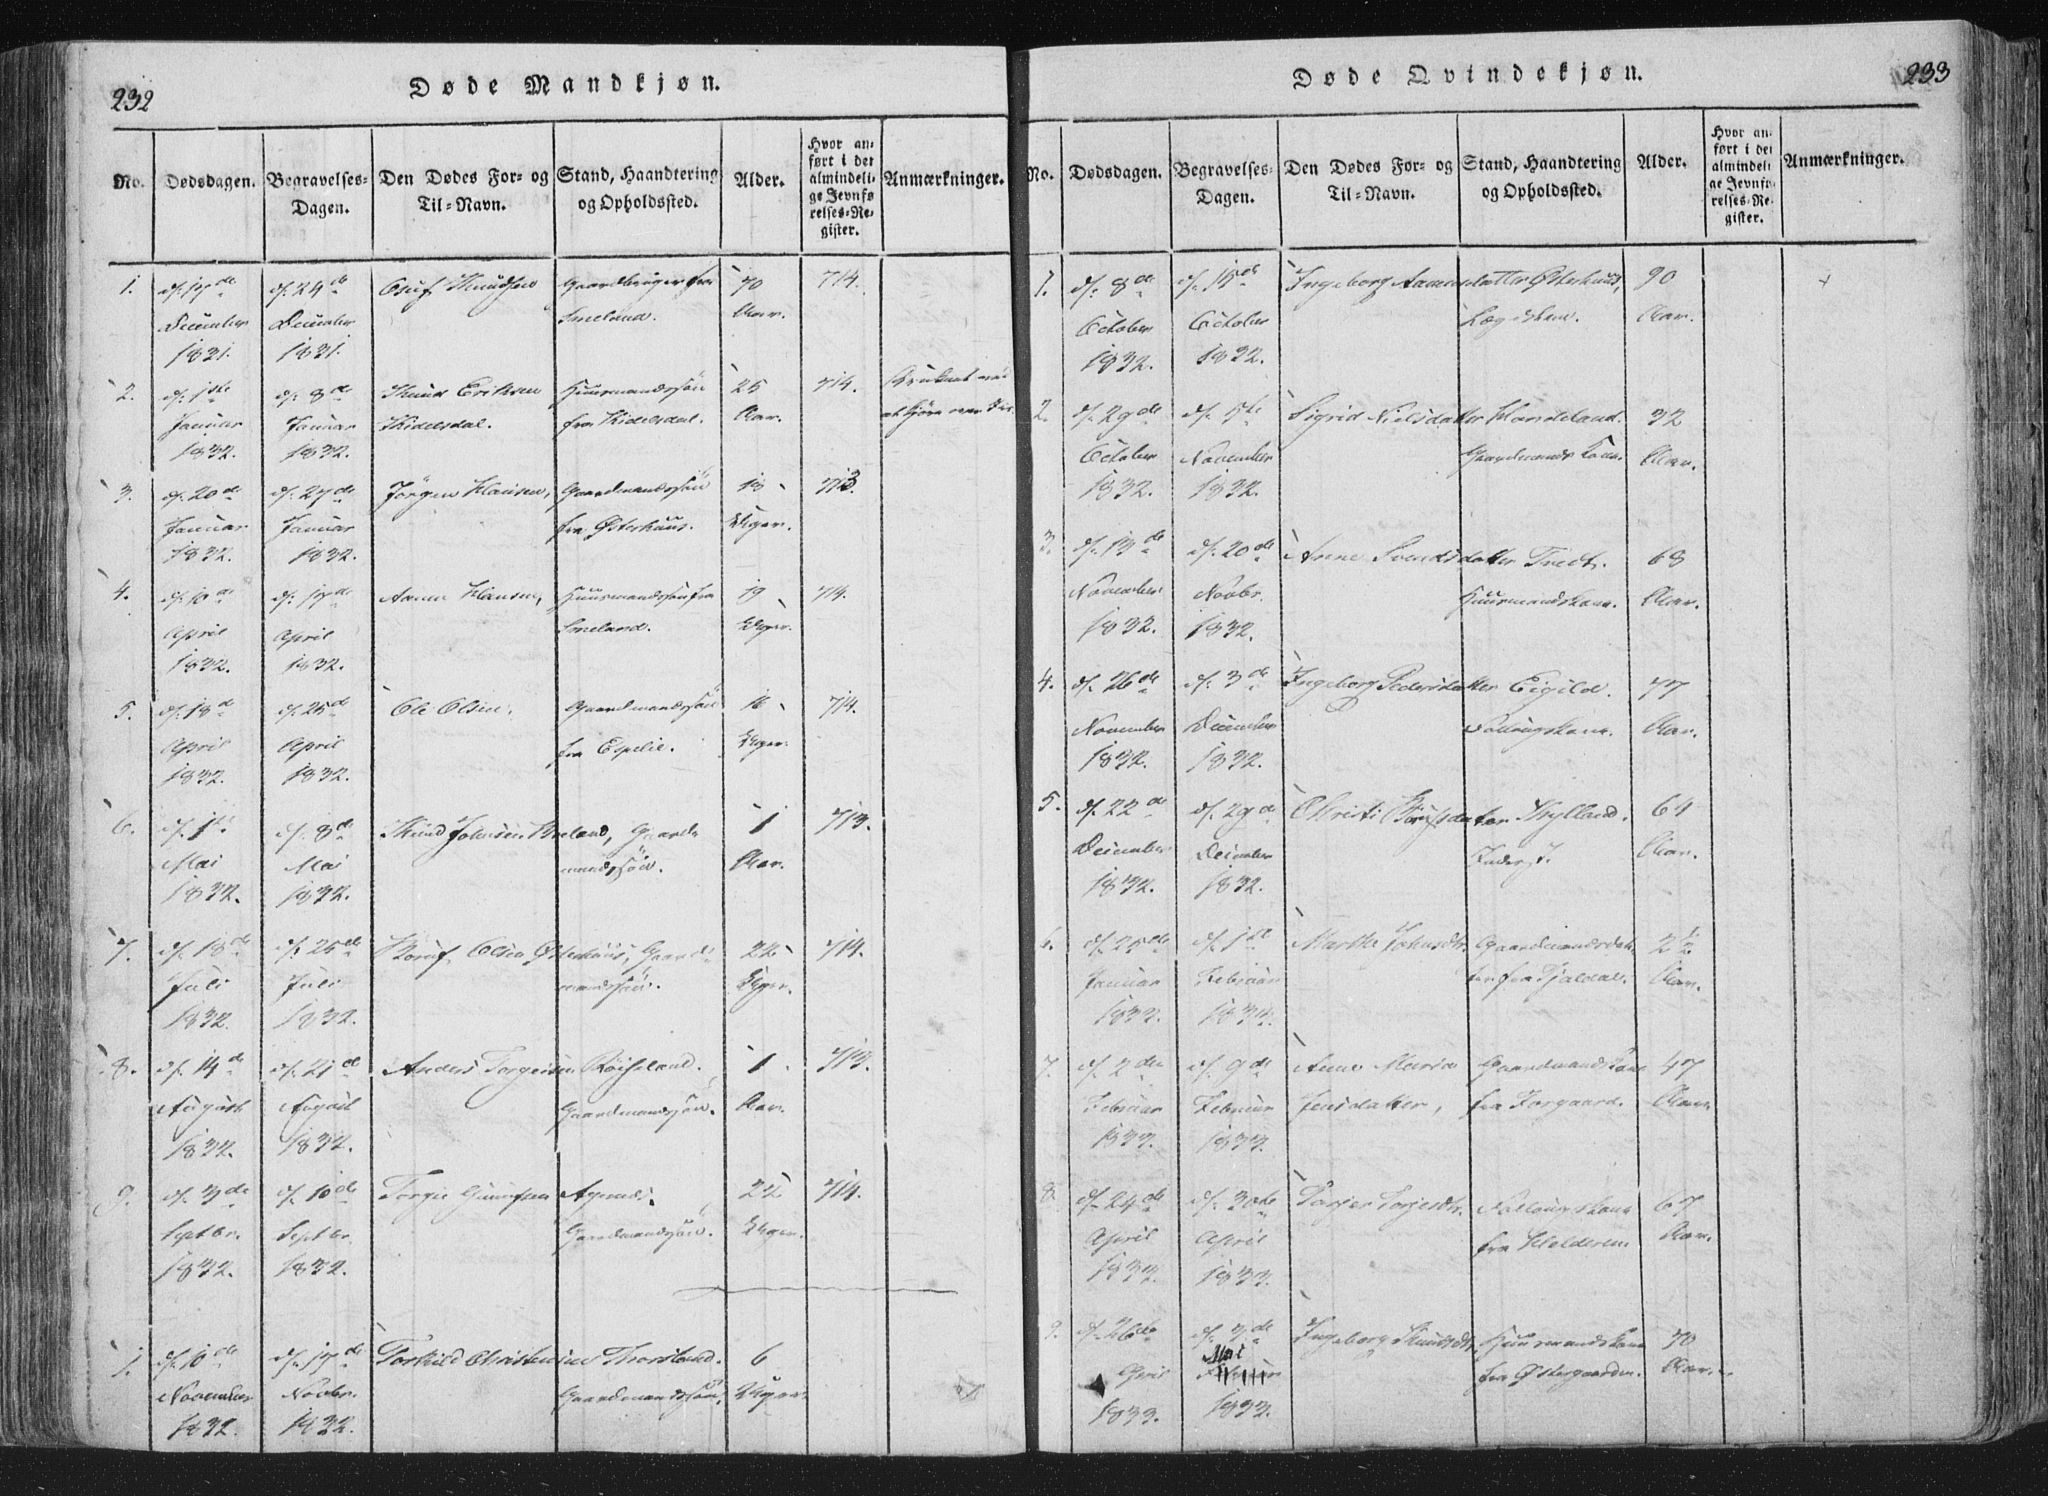 232
Døde Mandkjøn.
No. Dødsdagen. Begravelses-Dagen. Den Dødes For- og Til-Navn. Stand, Haandtering og Opholdssted. Alder. Hvor anført i det almindelige Jevnførelses-Register. Anmærkninger.
1. d. 17de d. 24de Knudsen Gaardbruger fra 70 714.
December December Smeland. Aar.
1831. 1831.
2. d. 1ste d. 8de Knud Eriksen Huusmandssøn 25 714.
Januar Januar Kidelsdal. fra Kidelsdal. Aar.
1832. 1832.
3. d. 20de d. 27de Jörgen Hansen, Gaardmandssøn 18 713.
Januar Januar fra Østerhuus. Uger.
1832. 1832.
4. d. 10de d. 17de Aanen Hansen, Huusmandssøn fra 19 714.
April April Smeland. Uger.
1832. 1832.
5. d. 18de d. 25de Ole Olsen. Gaardmandssøn 16 714.
April April fra Espelie. Uger.
1832. 1832.
6. d. 1ste d. 8de Knud Johnsen Gaard- 1 713.
Mai Mai mandssøn. Aar.
1832. 1832.
7. d. 18de d. 25de Olsen Østerhuus, Gaard- 22 714.
Juli Juli mandssøn. Uger.
1832. 1832.
8. d. 14de d. 21de Anders Torgersen Röiseland. 1 713.
August August Gaardmandssøn. Aar.
1832. 1832.
9. d. 3de d. 10de Torgie 22 714.
Septbr. Septbr. Gaardmandssøn. Uger.
1832. 1832.
1. d. 10de d. 17de Torkild Christensen 6
November Novbr. Gaardmandssøn. Uger.
1832. 1832.
233
Døde Qvindekjøn.
No. Dødsdagen. Begravelses-Dagen. Den Dødes For- og Til-Navn. Stand, Haandtering og Opholdssted. Alder. Hvor anført i det almindelige Jevnførelses-Register. Anmærkninger.
1. d. 8de d. 15de Ingeborg Aanensdatter Østerhuus, 90 +
October October Lægdslem. Aar.
1832. 1832.
2. d. 29de d. 5te Sigrid Nielsdatter 32
October November Gaardmands Kone. Aar.
1832. 1832.
3. d. 13de d. 20de Anne Svendsdatter Tvedt. 68
November Novbr. Huusmandskone. Aar.
1832. 1832.
4. d. 26de d. 3de Ingeborg Pedersdatter Eigild. 77
November December Aar.
1832. 1832.
5. d. 22de d. 29de Christi 64
December December Inderst. Aar.
1832. 1832.
6. d. 25de d. 1ste Marthe Johnsdtr. Gaardmandsdat- 2½
Januar Februar ter fra Aar.
1833. 1833.
7. d. 2den d. 9de Anne Maria Gaardmandskone 47
Februar Februar Jensdatter, fra Aar.
1833. 1833.
8. d. 24de d. 30te Torjesdtr. 67
April April fra Aar.
1833. 1833.
9. d. 26de d. 3de Ingeborg Knudsdtr. Huusmandskone 70
April Mai fra Østergaarden. Aar.
1833. 1833.